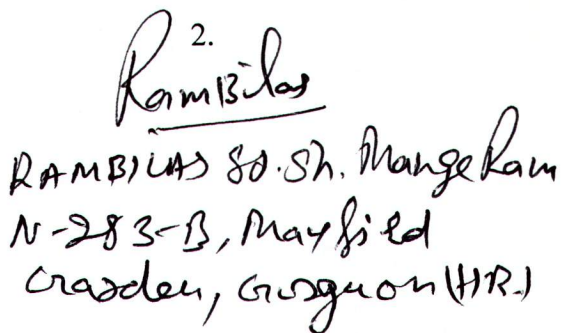 2.
RamBilas
RAMBILAS So. Sh. Mange Ram
N-283-B, Mayfield
Garden, Gurgaon (HR.)